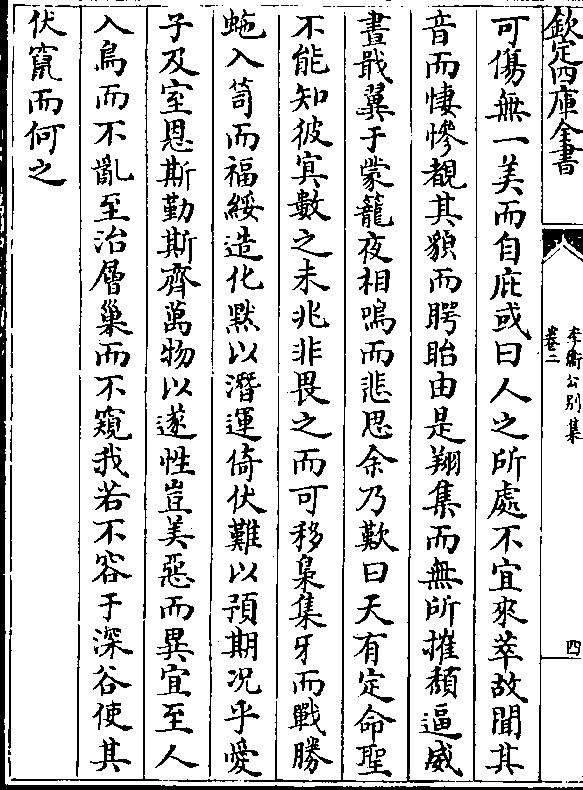 欽定四庫全書
李衛公別集
卷二
四
可傷無一美而自庇或曰人之所處不宜來萃故聞其
音而悽慘覩其貌而腭眙由是翔集而無所摧頽逼威
晝戢翼于蒙籠夜相鳴而悲思余乃歎曰天有定命聖
不能知彼㝠數之未兆非畏之而可移梟集牙而戰勝
虵入笥而福綏造化黙以潛運倚伏難以預期况乎愛
子及室恩斯勤斯齊萬物以遂性豈美惡而異宜至人
入鳥而不亂至治層巢而不窺我若不容于深谷使其
伏竄而何之